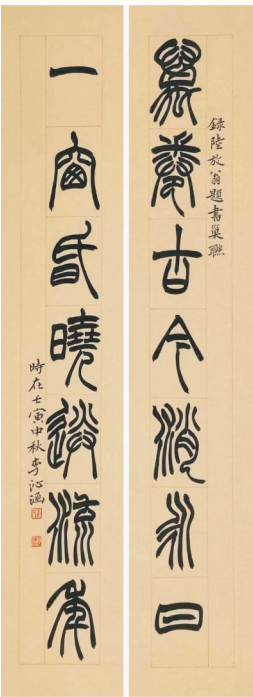 萬卷古今消永日
録陸放翁題書巢聯
一窗昏曉送流年
時在壬寅中秋李沁漁